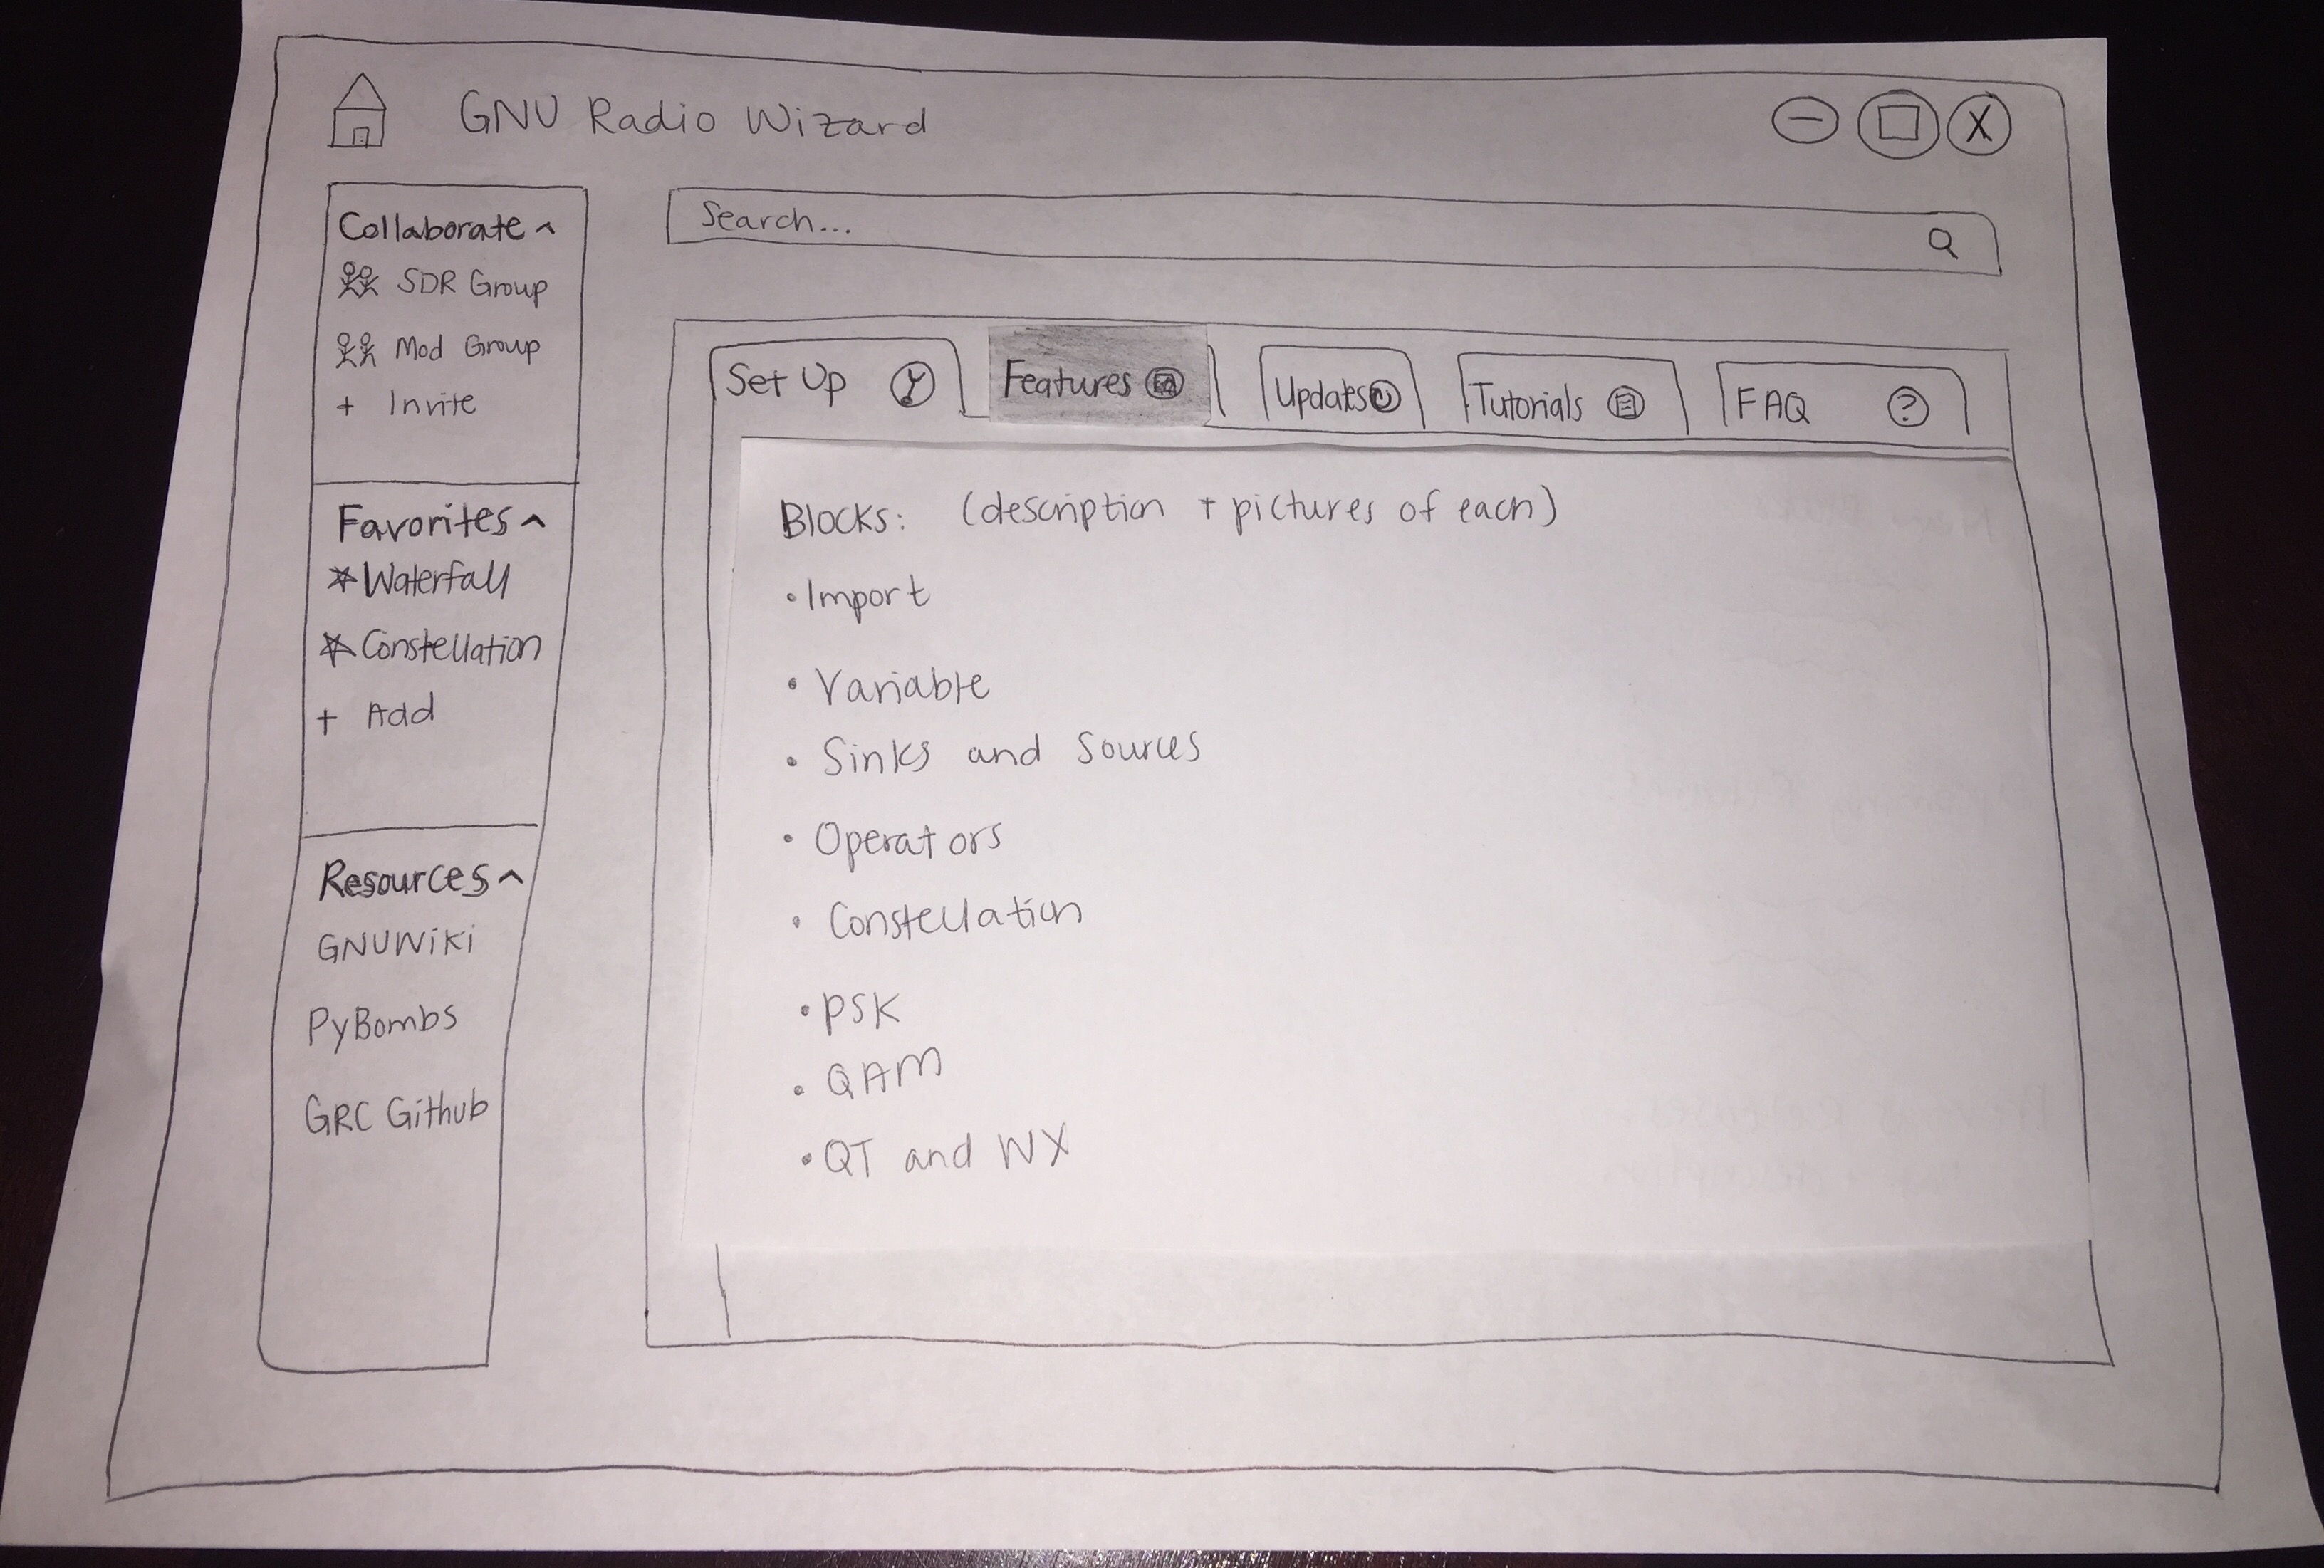 GNU Radio Wizard
Search...
Collaborate
SDR Group
Mod Group
+ Invite
Favorites
Waterfall
Constellation
+ Add
Resources
GNUWiki
PyBombs
GRC Github
Set Up
Features
Updates
Tutorials
FAQ ?
Blocks: (description + pictures of each)
• Import
• Variable
• Sinks and Sources
• Operators
• Constellation
• PSK
• QAM
• QT and WX